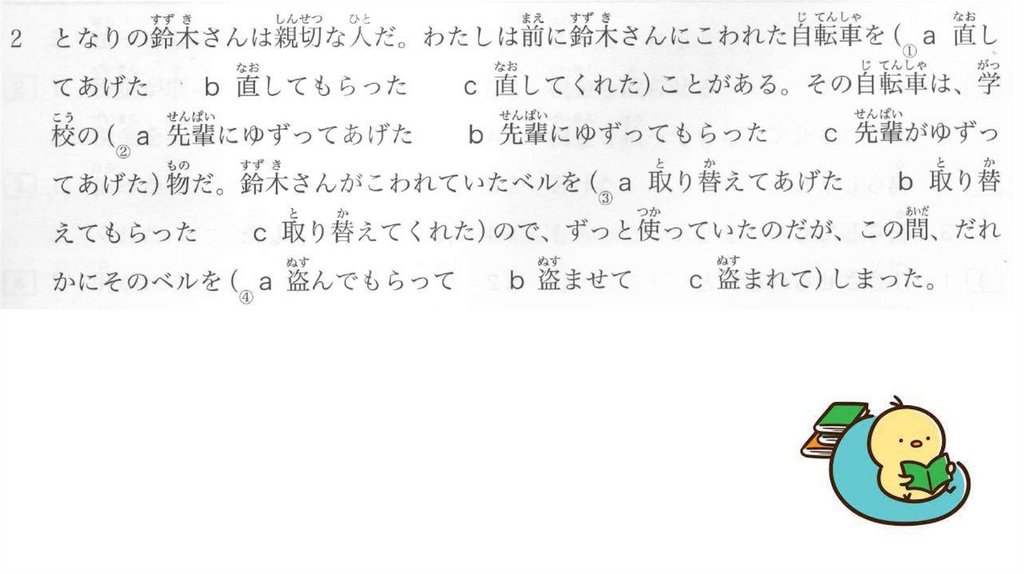 2 となりの鈴木さんは親切な人だ。わたしは前に鈴木さんにこわれた自転車を(① a 直し
てあげた b 直してもらった c 直してくれた)ことがある。その自転車は、学
校の(② a 先輩にゆずってあげた b 先輩にゆずってもらった c 先輩がゆずっ
てあげた)物だ。鈴木さんがこわれていたベルを(③ a 取り替えてあげた b 取り替
えてもらった c 取り替えてくれた)ので、ずっと使っていたのだが、この間、だれ
かにそのベルを(④ a 盗んでもらって b 盗ませて c 盗まれて)しまった。